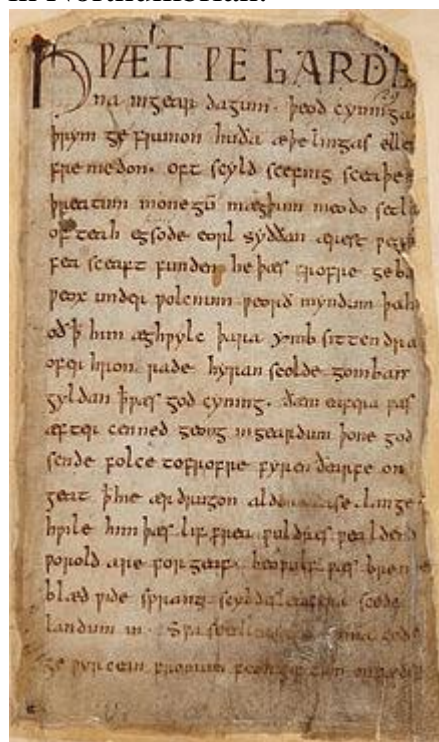 in Northumbrian.
HǷÆT ǷE GARDE
na ingear dagum. þeod cyninga
þrym ge frunon huða æþelingas elle
fre medon. oft scyld scefing sceaþe
þreatum monegū mægþum meodo setla
of teah egsode eorl syððan ærest ƿear
fea sceaft funden he þæs frofre geba
ƿeox under ƿolcnum ƿeorð myndum þah
oð ꝥ him æghƿylc þara ymb sittendra
ofer hron rade hyran scolde gomban
gyldan ꝥ ƿæs god cyning. ðæm eafera ƿæs
æfter cenned geong ingeardum þone god
sende folce tofrofre fyren ðearfe on
geat ꝥ hie ær drugon aldor ase. lange
hƿile him þæs lif frea ƿuldres ƿealdend
ƿorold are for geaf. beoƿulf ƿæs breme
blæd ƿide sprang scyldes eafera scede
landum in. Sƿa sceal guma gode
ge ƿyrcean fromum feoh giftum on fæder